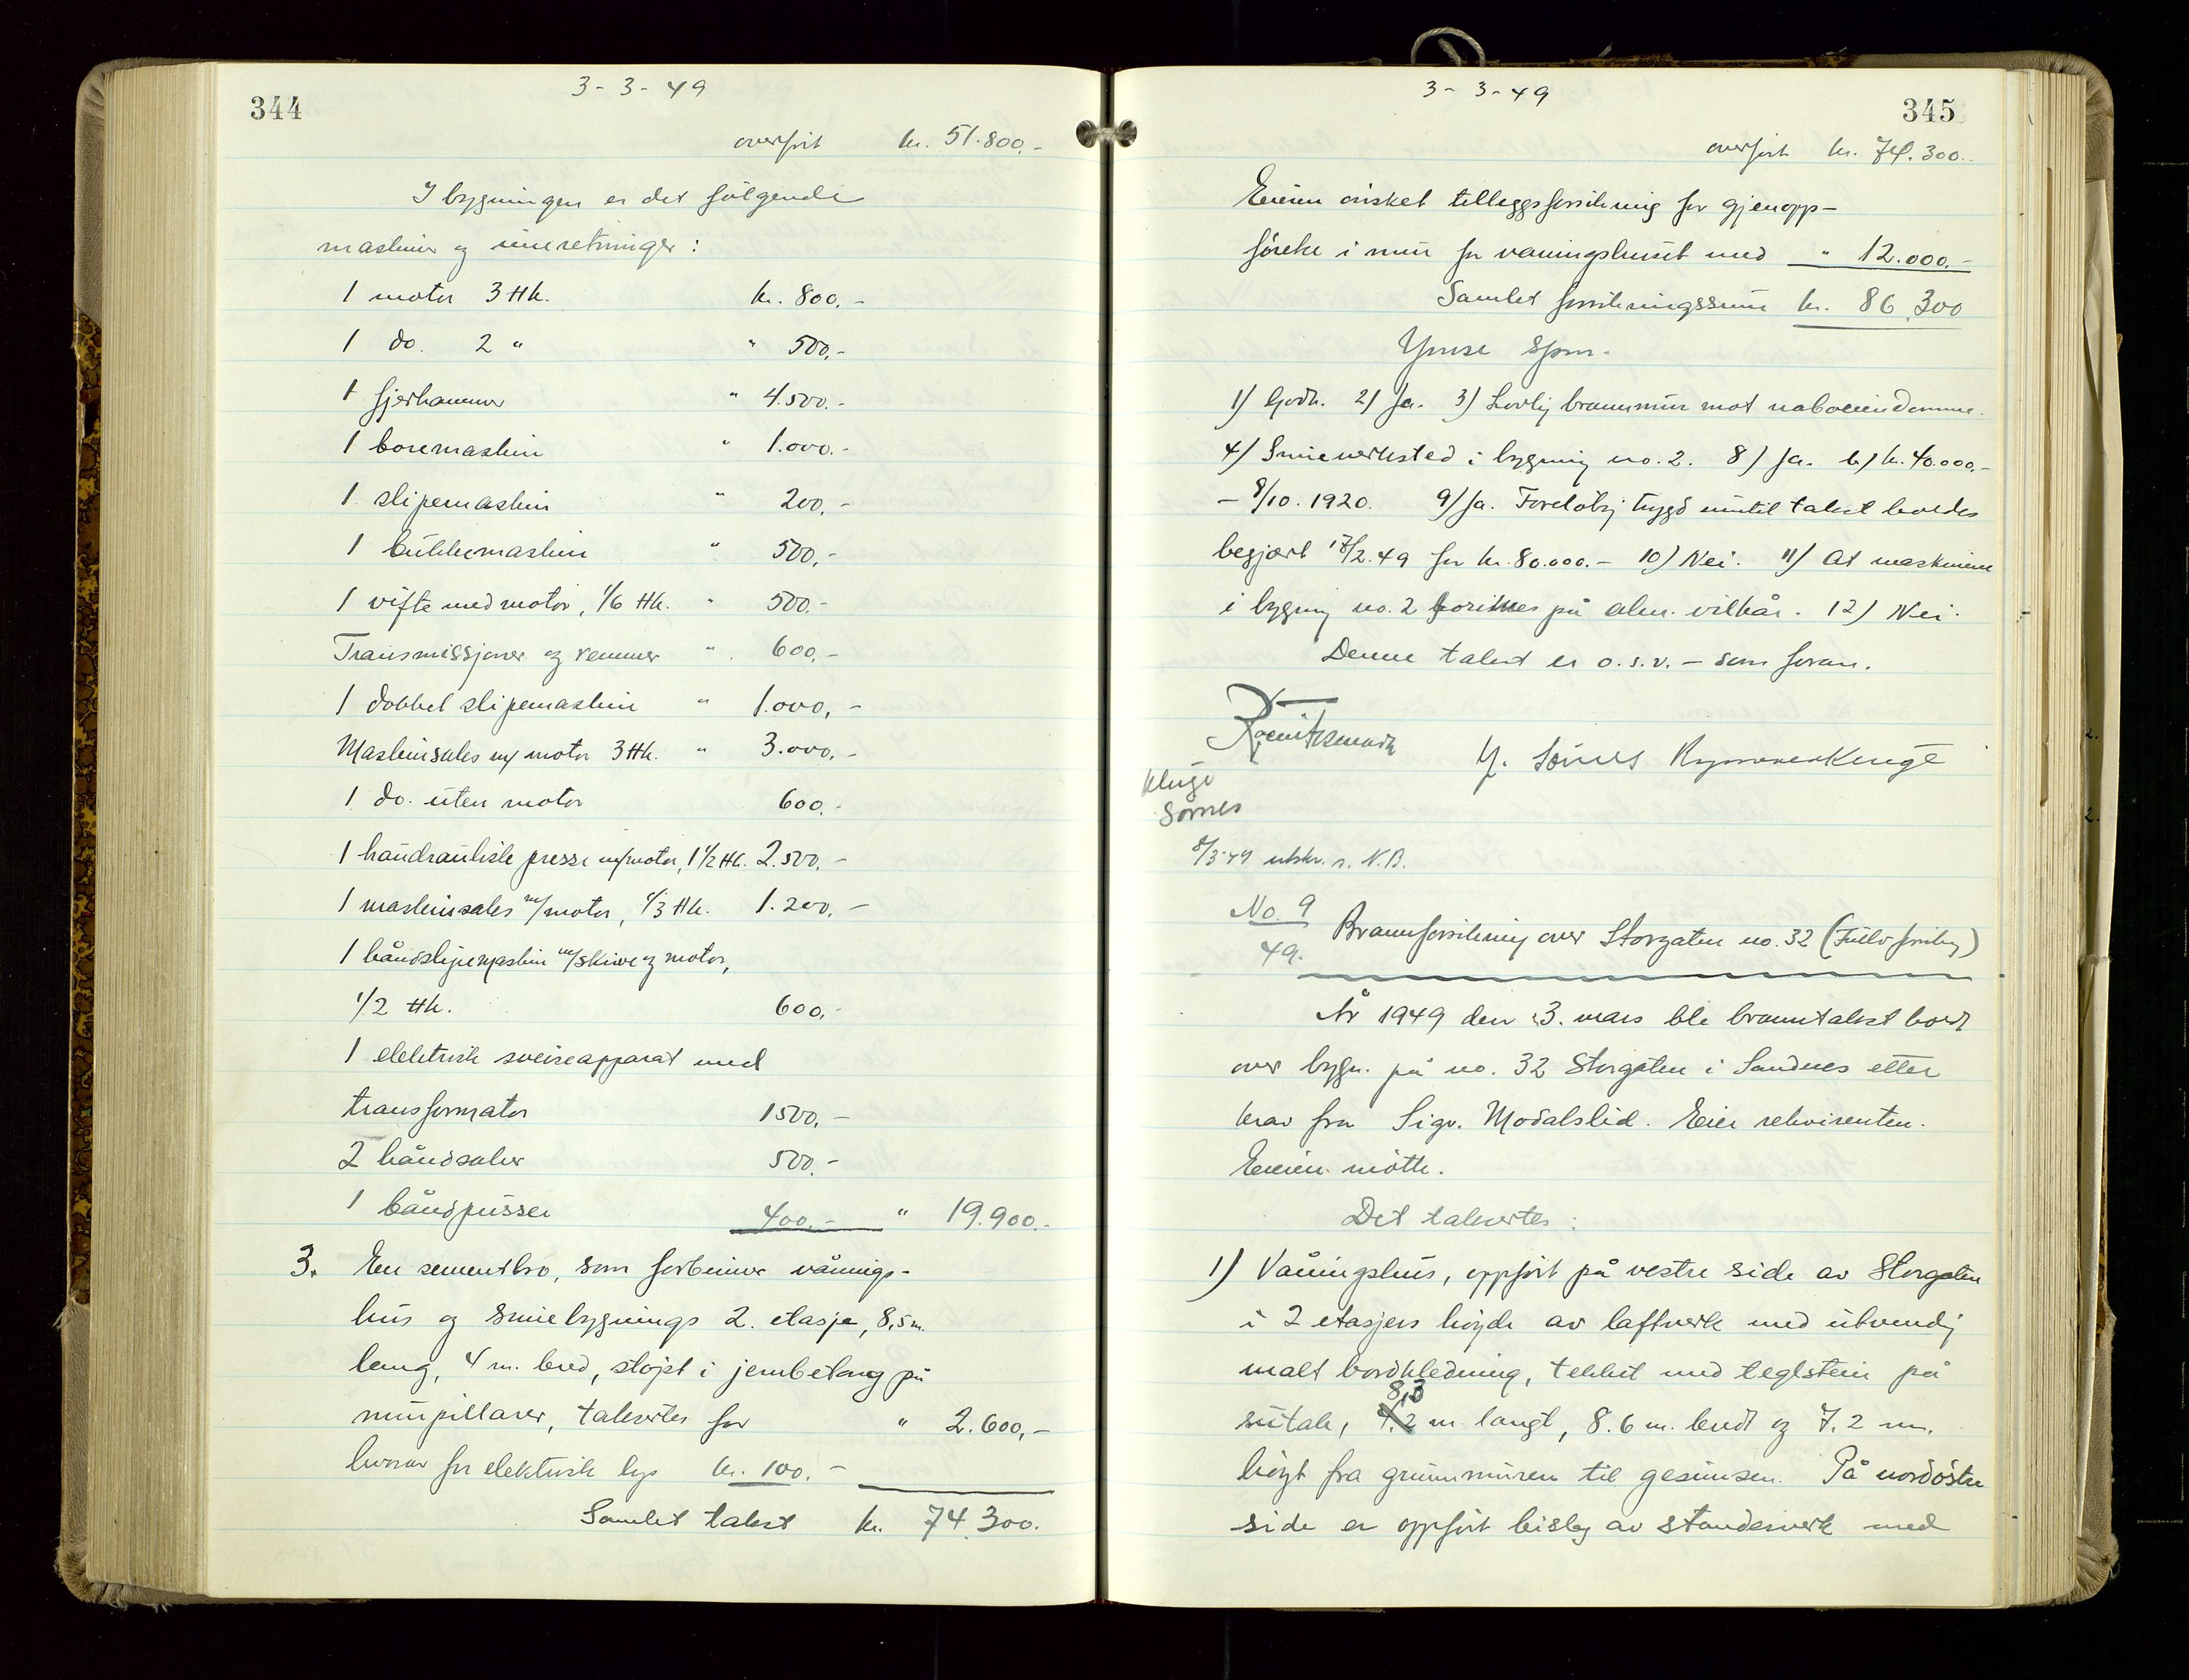 344
3-3-49
overført kr. 51.800.-
I bygningen er det følgende
maskiner og innretninger:
1 motor 3 Hk. kr. 800.-
1 do. 2 " " 500,-
1 fjærhammer " 4.500.-
1 boremaskin " 1.000.-
1 slipemaskin " 200,-
1 bukkemaskin " 500,-
1 vifte med motor, 1/6 Hk. " 500.-
Transmissjoner og remmer " 600,-
1 dobbel slipemaskin " 1.000,-
Maskinsales m/ motor 3 Hk. " 3.000,-
1 do. uten motor 600.-
1 haudraulisk presse m/motor, 1 1/2 Hk. 2.500,-
1 maskinsales m/motor, 1/3 Hk. 1.200,-
1 båndslipemaskin m/skive og motor,
1/2 Hk. 600,-
1 elektrisk sveiseapparat med
transformator 1500,-
2 håndsaker 500.-
1 båndpusser 400.- " 19.900.-
3. En sementbro, som forbinner vånings-
hus og smiebygnings 2. etasje, 8,5 m.
lang, 4 m. bred, støpt i jernbetong på
murpillarer, takseres for " 2.600,-
hvorav for elektrisk lys kr. 100.-
Samlet takst kr. 74.300.
345
3-3-49
overført kr. 74.300..
Eieren ønsket tilleggsforsikring for gjenopp-
førelse i mur for våningshuset med " 12.000.-
Samlet forsikringssum kr. 86.300
Ymse Spm.
1) Godk. 2) Ja. 3) Lovlig brannmur mot naboeiendommene.
4) Smieverksted i bygning no. 2. 8) Ja. b) kr. 40.000,-
- 8/10. 1920. 9) Ja. Foreløbig trygd inntil takst holdes
begjært 17/2.49 for kr. 80.000.- 10) Nei. 11) At maskinene
i bygning no. 2 på alm. vilkår. 12) Nei.
Denne takst er o.s.v. - som foran.
Y. Sømes
Kluge
Sømes
8/3-49 utskr. s. N.B.
No. 9
49.
Brannforsikring over Storgaten no. 32
År 1949 den 3. mars ble branntakst holdt
over bygn. på no. 32 Storgaten i Sandnes etter
krav fra Sigv. Modalslid. Eier rekvirenten.
Eieren møtte.
Det taksertes:
1) Våningshus, oppført på vestre side av Storgaten
i 2 etasjers høyde av laftverk med utvendig
malt bordkledning, tekket med teglstein på
sutak, 8,3 m langt, 8.6 m. bredt og 7.2 m.
høyt fra grunnmuren til gesimsen. På nordøstre
side er oppført bislag av standerverk med